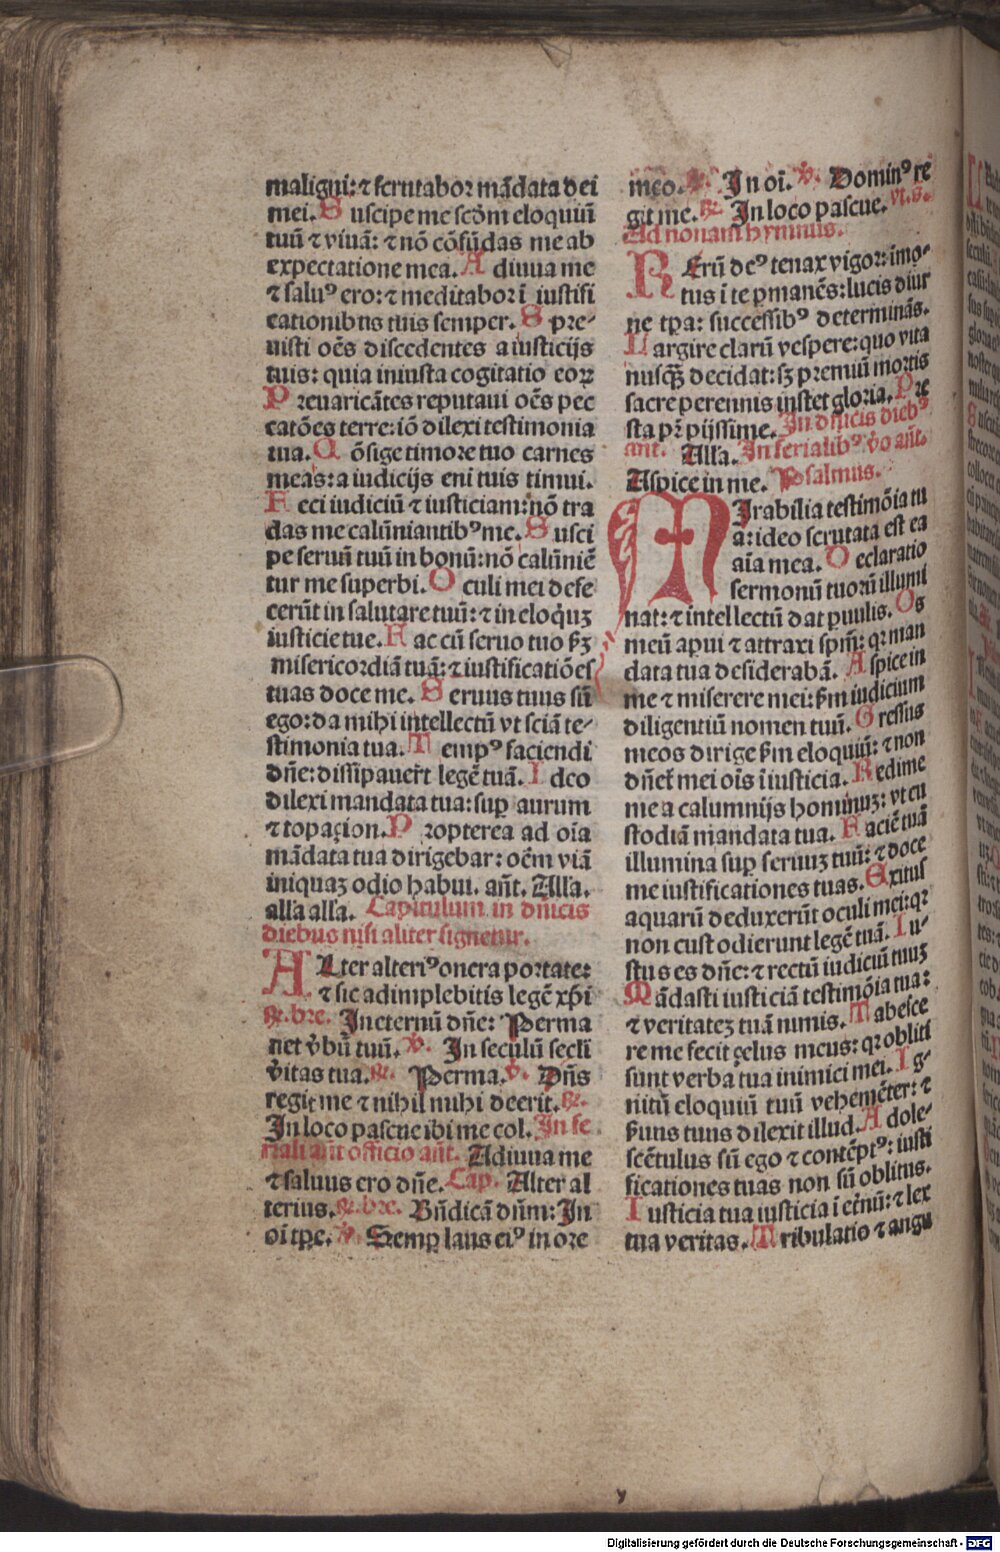 maligni: ⁊ scrutabor mādata dei
mei. Suscipe me scōm eloquiū
tuū ⁊ viuā: ⁊ nō cōfūdas me ab
expectatione mea. Adiuua me
⁊ saluꝰ ero: ⁊ meditabor ī iustifi
cationibus tuis semper. Spre-
uisti oēs discedentes a iusticijs
tuis: quia iniusta cogitatio eoꝝ
Preuaricātes reputaui oēs pec
catōes terre: iō dilexi testimonia
tua. Cōfige timore tuo carnes
meas: a iudicijs eni tuis timui.
Feci iudiciū ⁊ iusticiam: nō tra
das me calūniantibꝰ me. Susci
pe seruū tuū in bonū: nō calūniē
tur me superbi. Oculi mei defe
cerūt in salutare tuū: ⁊ in eloq̄uꝫ
iusticie tue. Fac cū seruo tuo ẜꝫ
misericordiā tuā: ⁊ iustificatiōes
tuas doce me. Seruus tuus sū
ego: da mihi intellectū vt sciā te-
stimonia tua. Tempꝰ faciendi
dn̄e: dissipauer̄t legē tuā. Ideo
dilexi mandata tua: suꝑ aurum
⁊ topaçion. Propterea ad oīa
mādata tua dirigebar: oēm viā
iniquaꝫ odio habui. an̄t. Alla.
alla alla. Capitulum in dn̄icis
diebus nisi aliter signetur.
Alter alteriꝰ onera portate:
⁊ sic adimplebitis legē xp̄i
℟. bre. In eternū dn̄e: Perma
net v̄bū tuū. ℣. In seculū seclī
v̄itas tua. ℟. Perma. ℣. Dn̄s
regit me ⁊ nihil mihi deerit. ℟.
In loco pascue ibi me col. In fe
riali aūt officio an̄t. Adiuua me
⁊ saluus ero dn̄e. Cap. Alter al
terius. ℟. bre. Bn̄dicā dn̄m: In
oī tꝑe. ℣. Semꝑ laus eiꝰ in ore
meo. ℟. In oī. ℣. Dominꝰ re
git me. ℟. In loco pascue. vt. s̄.
Ad nonam hymnus.
REꝝū deꝰ tenax vigor: imo-
tus ī te ꝑmanēs: lucis diur
ne tꝑa: successibꝰ determinās.
Largire clarū vespere: quo vita
nusq̄ꝫ decidat: sꝫ premiū mortis
sacre perennis instet gloria. Pre
sta pr̄ pijssime. In dn̄icis diebꝰ
ant. Alla. In ferialibꝰ v̄o an̄t.
Aspice in me. Psalmus.
MIrabilia testimōia tu
a: ideo scrutata est ea
aīa mea. Declaratio
sermonū tuoꝝ illumi
nat: ⁊ intellectū dat ꝑuulis. Os
meū aꝑui ⁊ attraxi spm̄: qꝛ man
data tua desiderabā. Aspice in
me ⁊ miserere mei: ẜm iudicium
diligentiū nomen tuū. Gressus
meos dirige ẜm eloquiū: ⁊ non
dn̄et̄ mei oīs īiusticia. Redime
me a calumnijs hominuꝫ: vt cu
stodiā mandata tua. Faciē tuā
illumina suꝑ seruuꝫ tuū: ⁊ doce
me iustificationes tuas. Exitus
aquarū deduxerūt oculi mei: qꝛ
non custodierunt legē tuā. Iu-
stus es dn̄e: ⁊ rectū iudiciū tuuꝫ
Mādasti iusticiā testimōia tua:
⁊ veritateꝫ tuā nimis. Tabesce
re me fecit ȩelus meus: qꝛ obliti
sunt verba tua inimici mei. Ig-
nitū eloquiū tuū vehemēter: ⁊
ẜuus tuus dilexit illud. Adole-
scētulus sū ego ⁊ contēptꝰ: iusti
ficationes tuas non sū oblitus.
Iusticia tua iusticia ī et̄nū: ⁊ lex
tua veritas. Tribulatio ⁊ angu
Digitalisierung gefördert durch die Deutsche Forschungsgemeinschaft - DFG